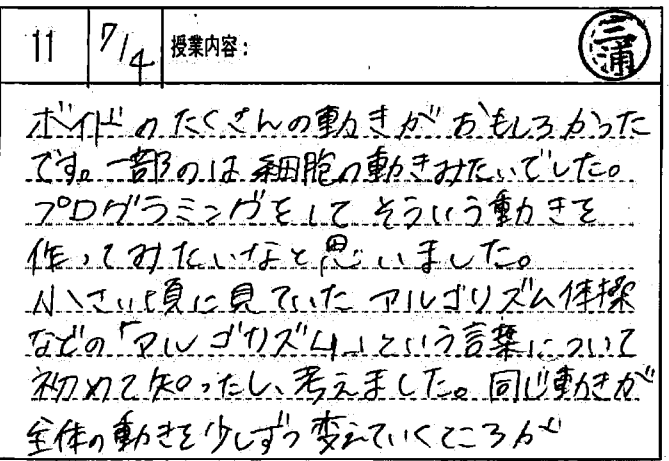 11 7/4 授業内容: 三浦
ボイドのたくさんの動きがおもしろかった
です。一部のは細胞の動きみたいでした。
プログラミングをしてそういう動きを
作ってみたいなと思いました。
小さい頃に見ていたアルゴリズム体操
などの「アルゴリズム」という言葉について
初めて知ったし、考えました。同じ動きが
全体の動きを少しずつ変えていくところが